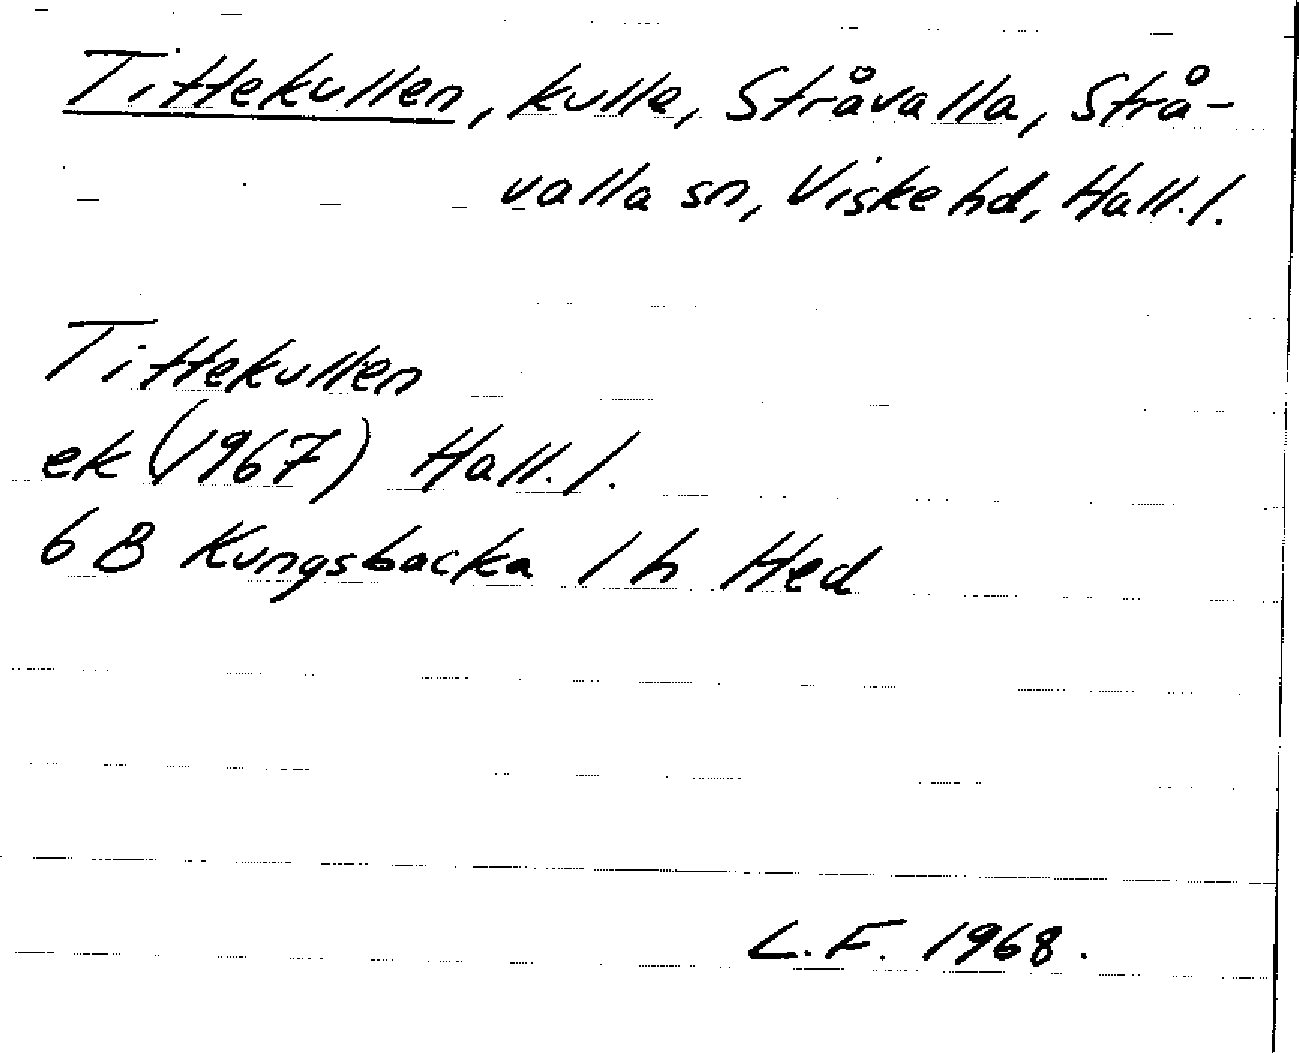 Tittekullen, kulle, Stråvalla, Strå-
valla sn, Viske hd, Hall. l.
Tittekullen
ek (1967) Hall. l.
6 B Kungsbacka 1 h Hed
L. F. 1968.